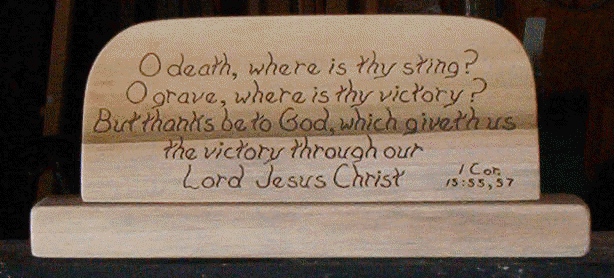 O death, where is thy sting?
O grave, where is thy victory?
But thanks be to God, which giveth us
the victory through our
Lord Jesus Christ
1 Cor.
15:55,57